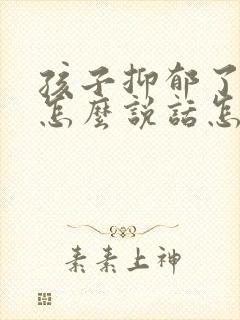 孩子抑郁了
怎麼説話怎
素素上神